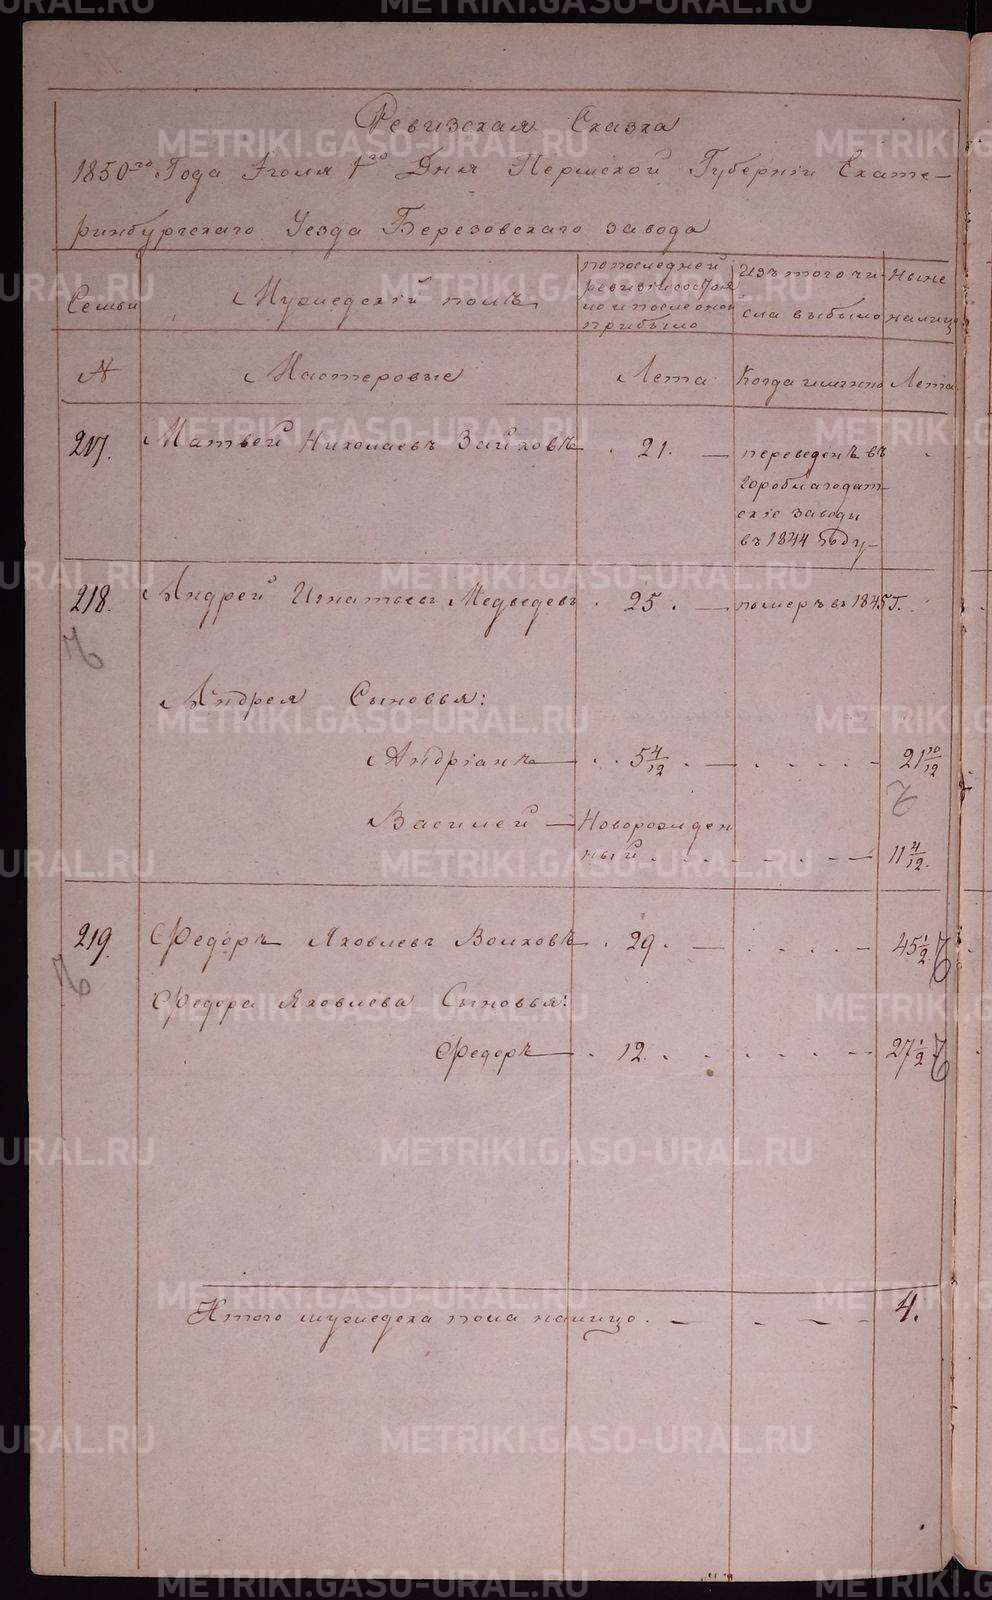 Ревизская Сказка
1850го Года Іюля 1го Дня Пермской Губерніи Екате-
ринбургскаго Уезда Березовскаго завода
Семьи
Мужедскій полъ
по последней
ревизіи состоя
ло и после оной
прибыло
Изъ того чи-
сла выбыло
Ныне
налицо
№ Мастеровые Лета Когда имянно Лета
217. Матвей Николаевъ Зайковъ 21. переведенъ въ
Гороблагодат-
скіе заводы
въ 1844 Году
218. Андрей Игнатьевъ Медведевъ 25. померъ въ 1845 г.
Андрея Сыновья:
Андріанъ 5 4/12 21 10/12
Василей Новорожден
ный 11 4/12.
219. Федоръ Яковлевъ Волковъ 29. 45 1/2
Федора Яковлева Сыновья:
Федоръ 12. 27 1/2
Итого мужедска пола налицо. 4.
METRIKI.GASO-URAL.RU